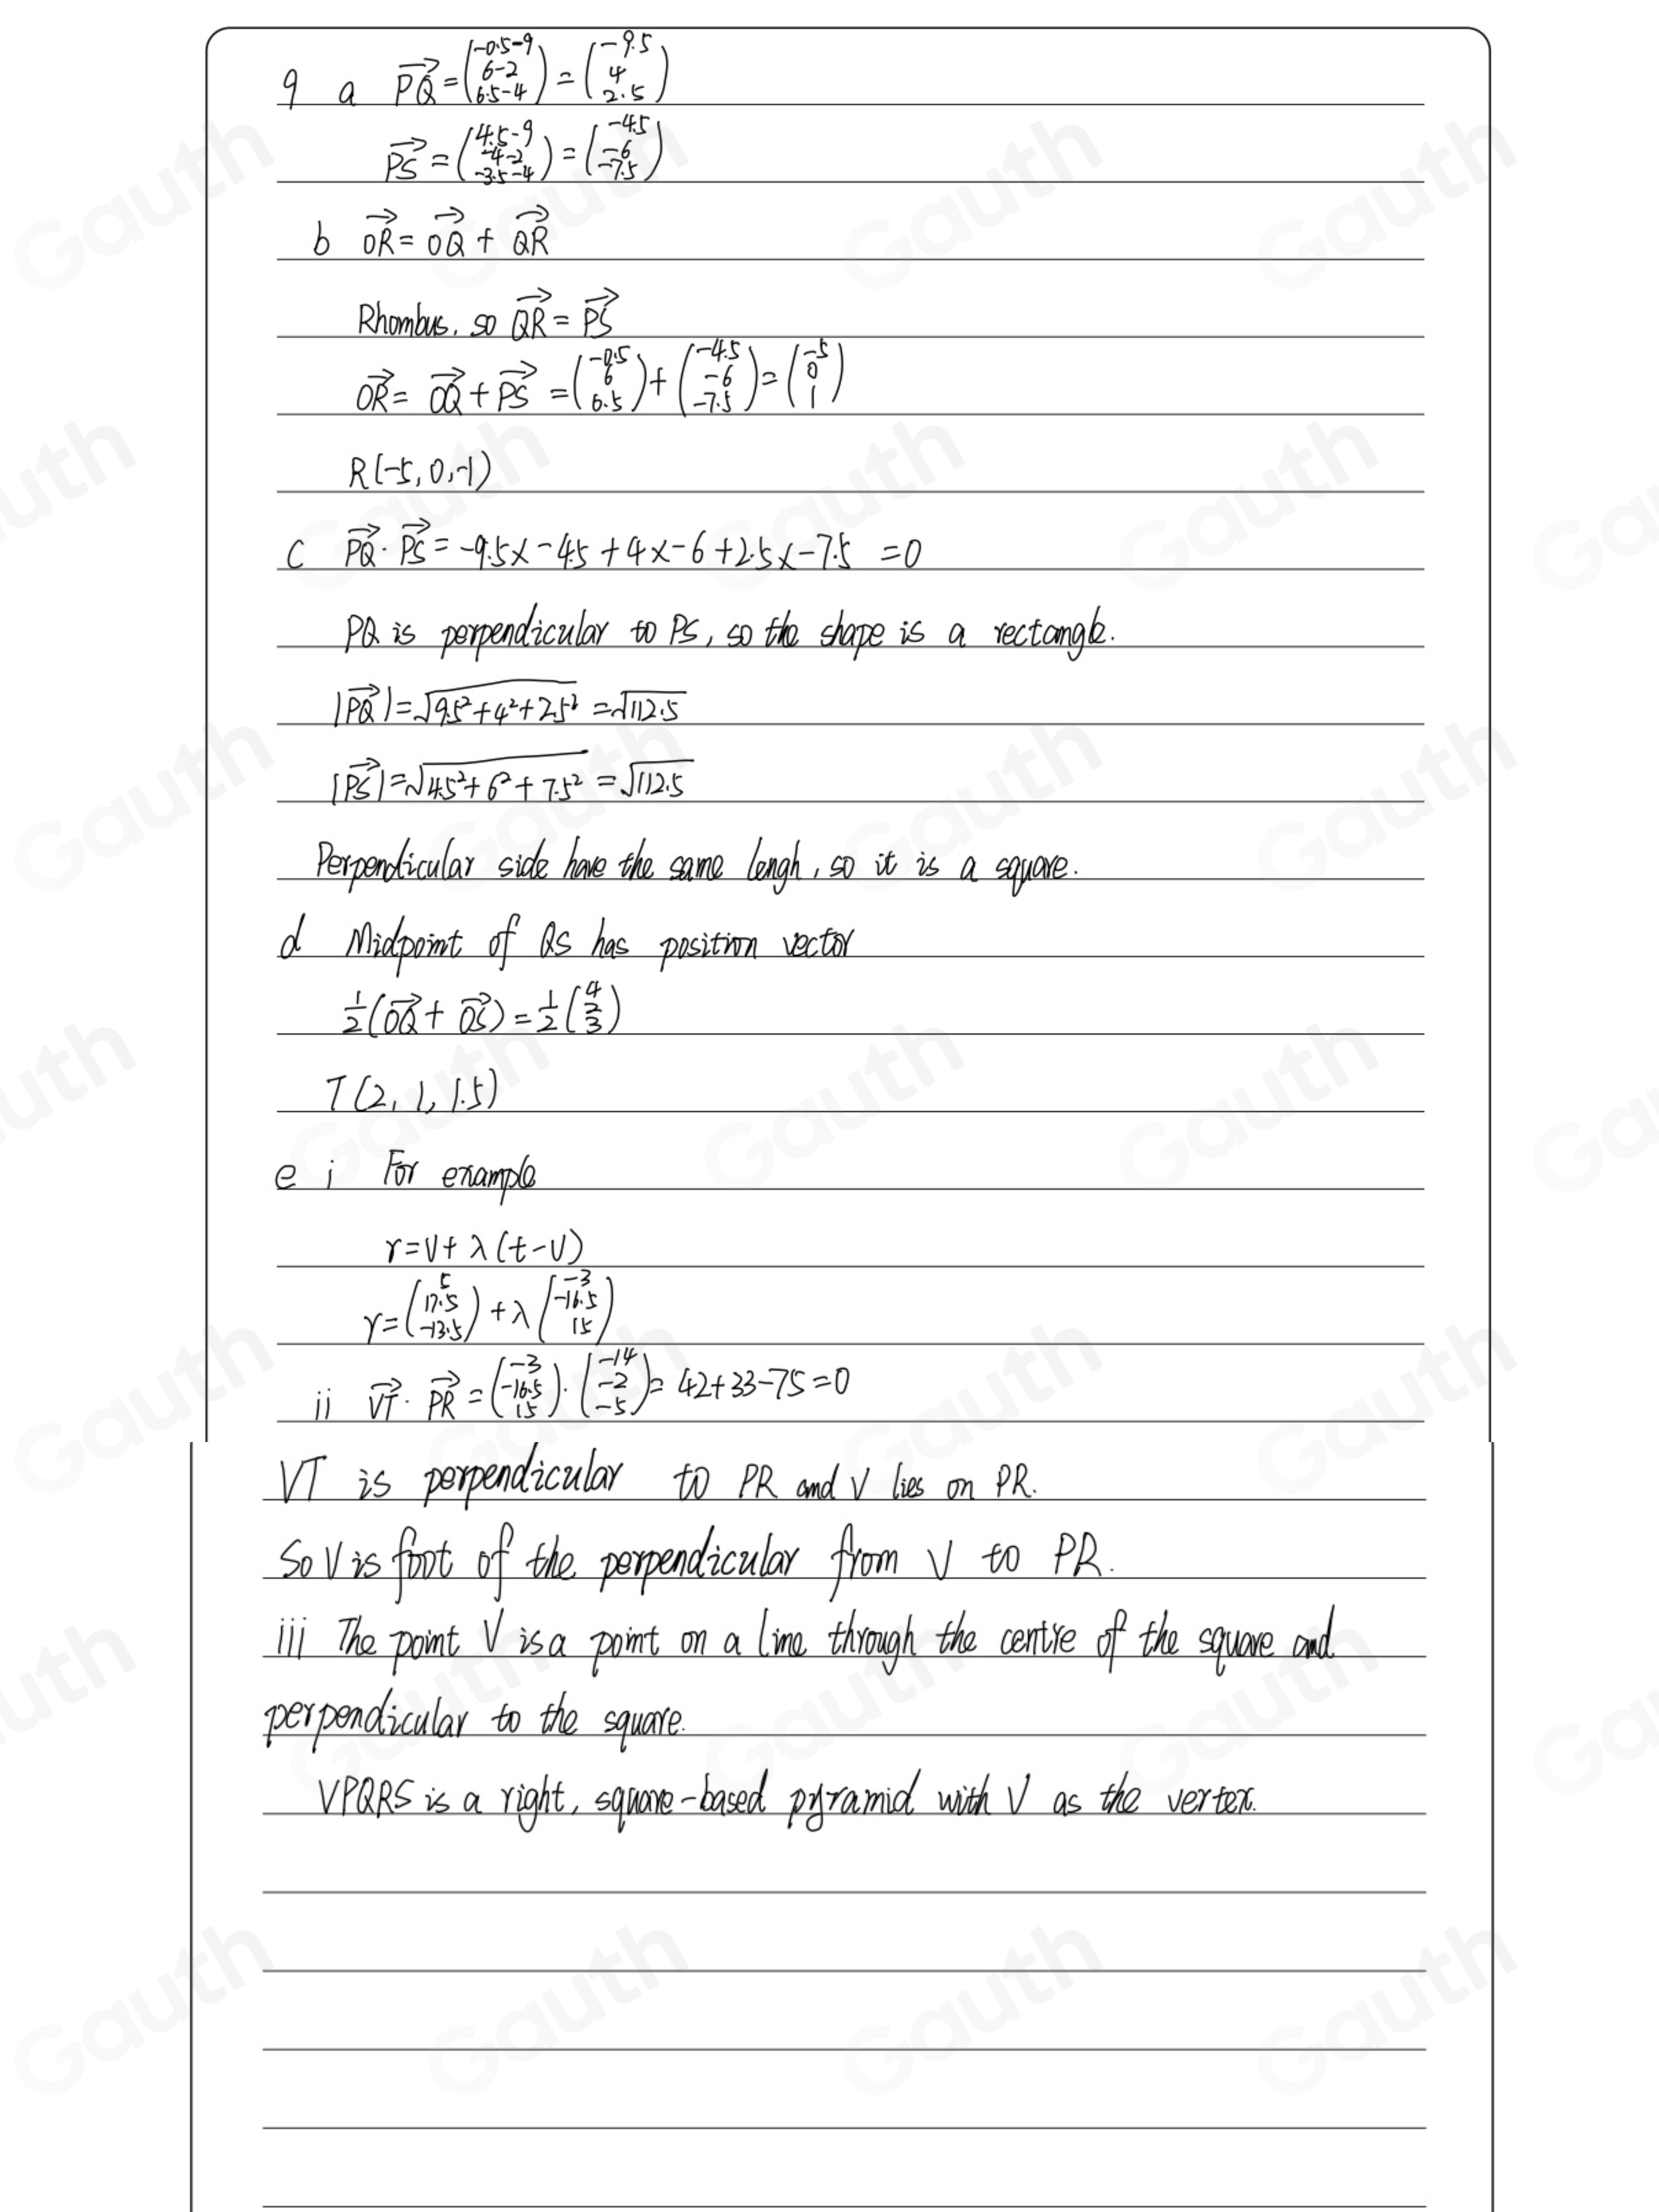 9 a PQ⃗ = (-0.5-9, 6-2, 6.5-4) = (-9.5, 4, 2.5)
PS⃗ = (4.5-9, -4-2, -3.5-4) = (-4.5, -6, -7.5)
b OR⃗ = OQ⃗ + QR⃗
Rhombus, so QR⃗ = PS⃗
OR⃗ = OQ⃗ + PS⃗ = (-0.5, 6, 6.5) + (-4.5, -6, -7.5) = (-5, 0, 1)
R(-5, 0, -1)
c PQ⃗ · PS⃗ = -9.5x-4.5+4x-6+2.5x-7.5 =0
PQ is perpendicular to PS, so the shape is a rectangle.
|PQ⃗| = √(9.5²+4²+2.5²) = √112.5
|PS⃗| = √(4.5²+6²+7.5²) = √112.5
Perpendicular side have the same lengh, so it is a square.
d Midpoint of QS has position vector
1/2(OQ⃗ + OS⃗) = 1/2(4, 2, 3)
T(2, 1, 1.5)
e i For example
r=v+λ(t-v)
r=(5, 17.5, -13.5) + λ(-3, -16.5, 15)
ii VT⃗ · PR⃗ = (-3, -16.5, 15) · (-14, -2, -5) = 42+33-75=0
VT is perpendicular to PR and V lies on PR.
So V is foot of the perpendicular from V to PR.
iii The point V is a point on a line through the centre of the square and
perpendicular to the square.
VPQRS is a right, square-based pyramid with V as the vertex.
Gauth